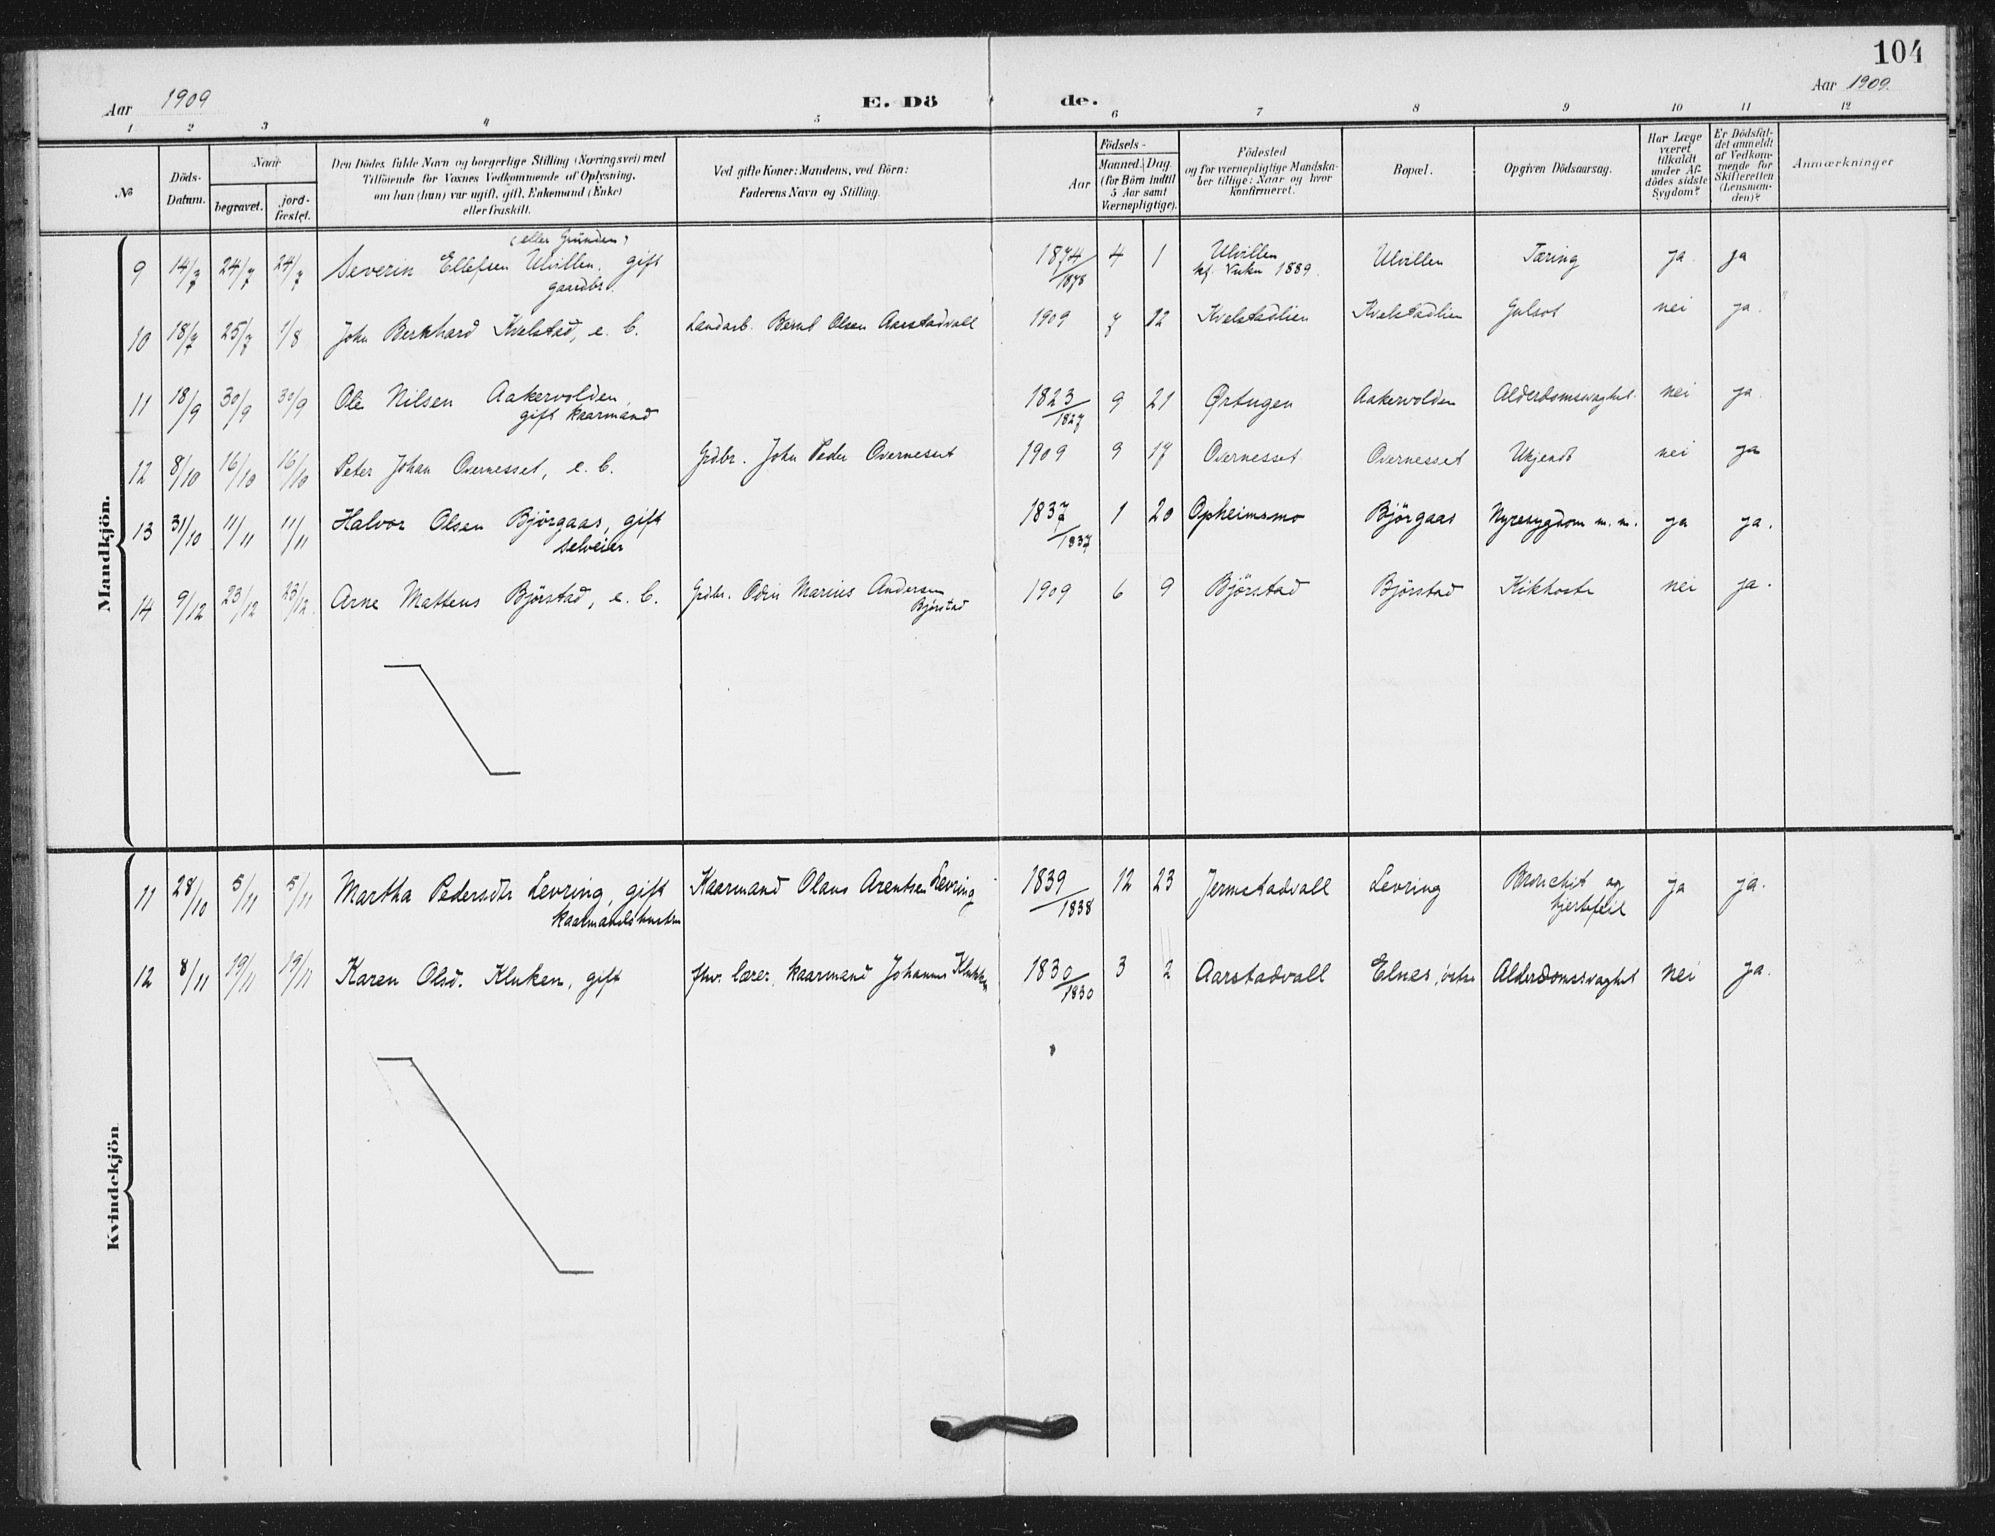 104
Aar 1909
E. Dö de.
Aar 1909.
1 2 3 4 5 6 7 8 9 10 11 12
№
Döds-
Datum.
Naar
begravet.
jord-
fæstet.
Den Dödes fulde Navn og borgerlige Stilling (Næringsvei) med
Tilföiende for Voxnes Vedkommende af Oplysning,
om han (hun) var ugift, gift, Enkemand (Enke)
eller fraskilt.
Ved gifte Koner: Mandens, ved Börn:
Faderens Navn og Stilling.
Födsels-
Aar
Maaned. Dag.
(for Börn indtil
5 Aar samt
Værnepligtige).
Födested
og for værnepligtige Mandska-
ber tillige: Naar og hvor
konfirmeret.
Bopæl.
Opgiven Dödsaarsag.
Har Læge
været
tilkaldt
under Af-
dödes sidste
Sygdom?
Er Dödsfal-
det anmeldt
af Vedkom-
mende for
Skifteretten
(Lensman-
den)?
Anmærkninger
Mandkjön.
(eller Grunden)
9 14/7 24/7 24/7 Severin Ellefsen Ulvillen, gift 1874/1878 4 1 Ulvillen Ulvillen Tæring ja. ja
gaardbr. kf. Vuku 1889.
10 18/7 25/7 1/8 John Bernhard Kvelstad, e. b. Landarb. Bernt Olsen Aarstadvall 1909 7 12 Kvelstadlien Kvelstadlien Gulsot nei ja.
11 18/9 30/9 30/9 Ole Nilsen Aakervolden, 1823/1827 9 21 Ørtugen Aakervolden Alderdomssvaghet. nei ja.
gift kaarmand
12 8/10 16/10 16/10 Peter Johan Overnesset, e. b. Grdbr. John Peder Overnesset 1909 9 17 Overnesset Overnesset Ukjendt nei ja
13 31/10 11/11 11/11 Halvor Olsen Björgaas, gift 1837/1837 1 20 Opheimsmo Björgaas Nyresygdom m. m. ja ja.
selveier
14 9/12 23/12 23/12. Arne Mattens Björstad, e. b. Grdbr. Odin Marius Andersen 1909 6 9 Björstad Björstad Kikhoste nei ja.
Björstad
Kvindekjön
11 28/10 5/11 5/11 Martha Pedersdtr Levring, gift Kaarmand Olaus Arentsen Levring 1839/1838 12 23 Jermstadvall Levring Bronchit og ja ja.
kaarmandshustru hjertefeil
12 8/11 19/11 19/11 Karen Olsd. Kluken, gift fhv. lærer, kaarmand Johannes Klukken 1830/1830 3 2 Aarstadvall Elnes, östre Alderdomssvaghet nei ja.